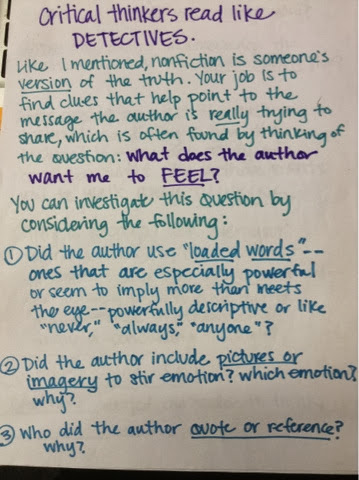 Critical thinkers read like
DETECTIVES.
Like I mentioned, nonfiction is someone's
version of the truth. Your job is to
find clues that help point to the
message the author is really trying to
share, which is often found by thinking of
the question: what does the author
want me to FEEL?
You can investigate this question by
considering the following:
① Did the author use "loaded words"--
ones that are especially powerful
or seem to imply more than meets
the eye--powerfully descriptive or like
"never," "always," "anyone"?
② Did the author include pictures or
imagery to stir emotion? which emotion?
why?
③ Who did the author quote or reference?
why?